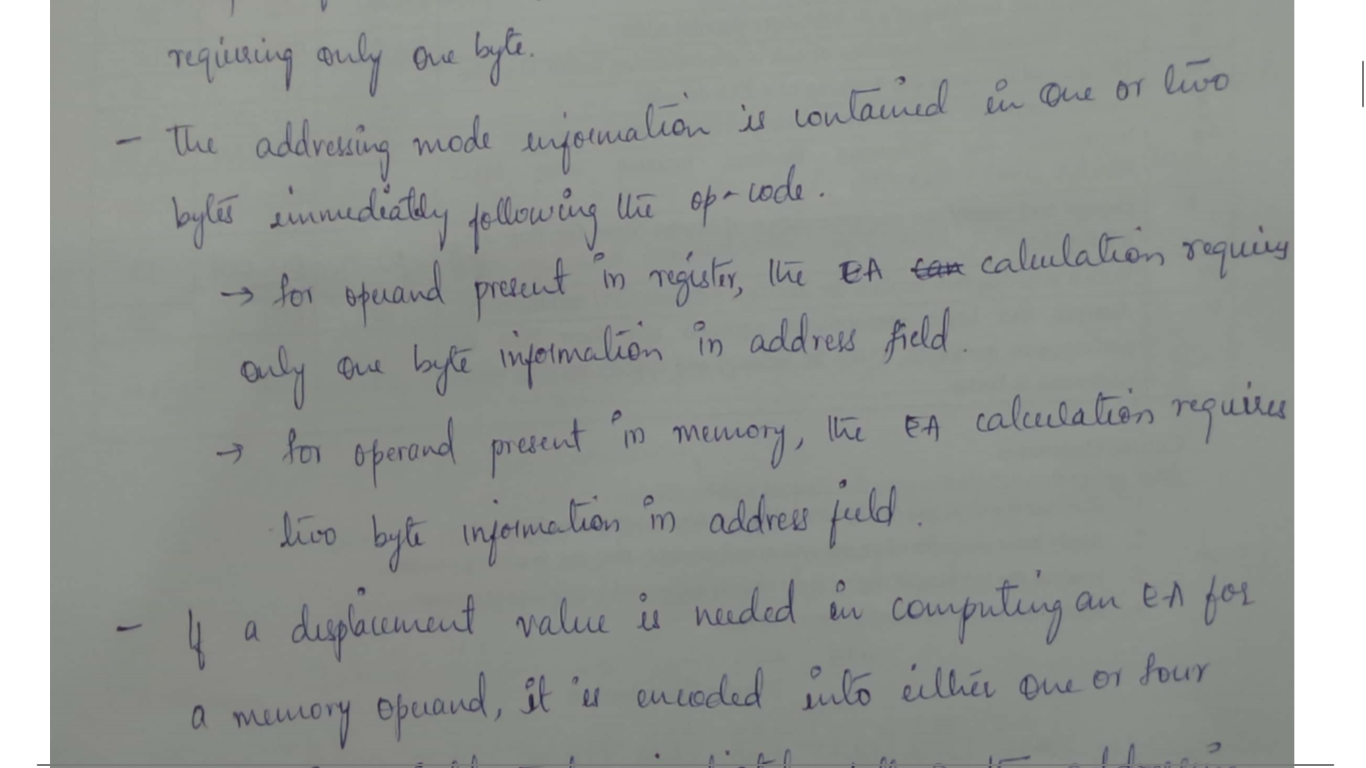 requiring only one byte.
- The addressing mode information is contained in one or two
bytes immediately following the op-code.
→ for operand present in register, the EA calculation requires
only one byte information in address field.
→ for operand present in memory, the EA calculation requires
two byte information in address field.
- If a displacement value is needed in computing an EA for
a memory operand, it is encoded into either one or four